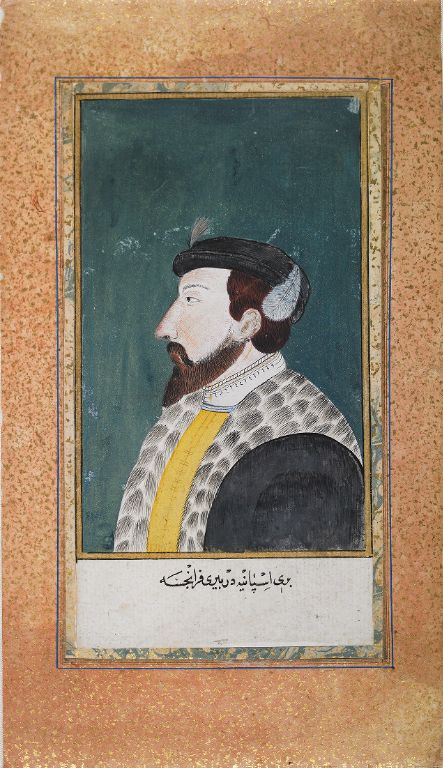 بری اِسْپانیَه دِرْ بیری فرانْجسَه